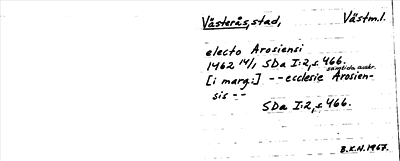 Västerås, stad, Västm.l.
electo Arosiensi
1462 14/1 SDa I:2, s. 466.
samtida avskr.
[i marg:] -- ecclesie Arosien-
sis --
SDa I:2, s. 466.
B.E.N. 1967.